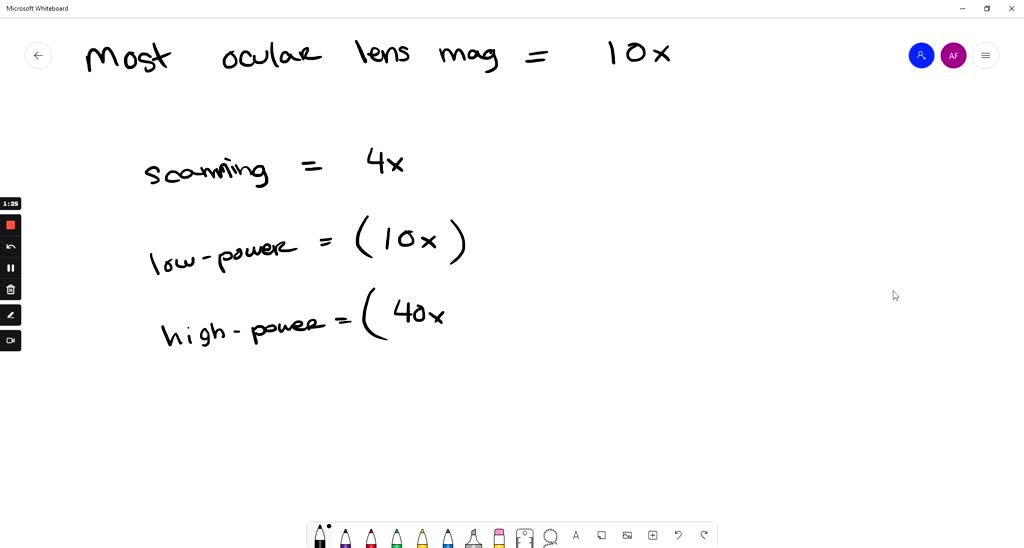 Microsoft Whiteboard
Most ocular lens mag = 10x
AF
scanning = 4x
1:25
low-power = (10x)
high-power = (40x
A